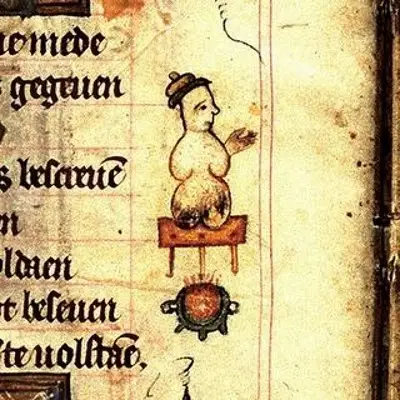 nomede
gegeuen
s bescreuē
en
oldaen
t beseuen
te uolstaē.